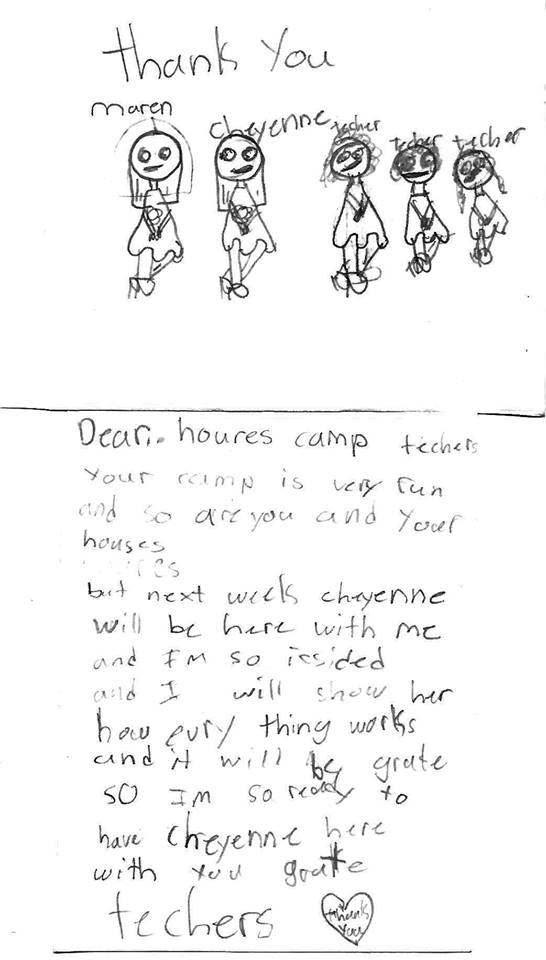 thank You
maren
cheyenne
techer
techer
techer
Dear. houres camp techers
Your camp is very fun
and so are you and Your
houses
but next week cheyenne
will be here with me
and I'm so icsided
and I will show her
how eury thing works
and it will be grate
so I'm so ready to
have cheyenne here
with you grate
techers
thank
you